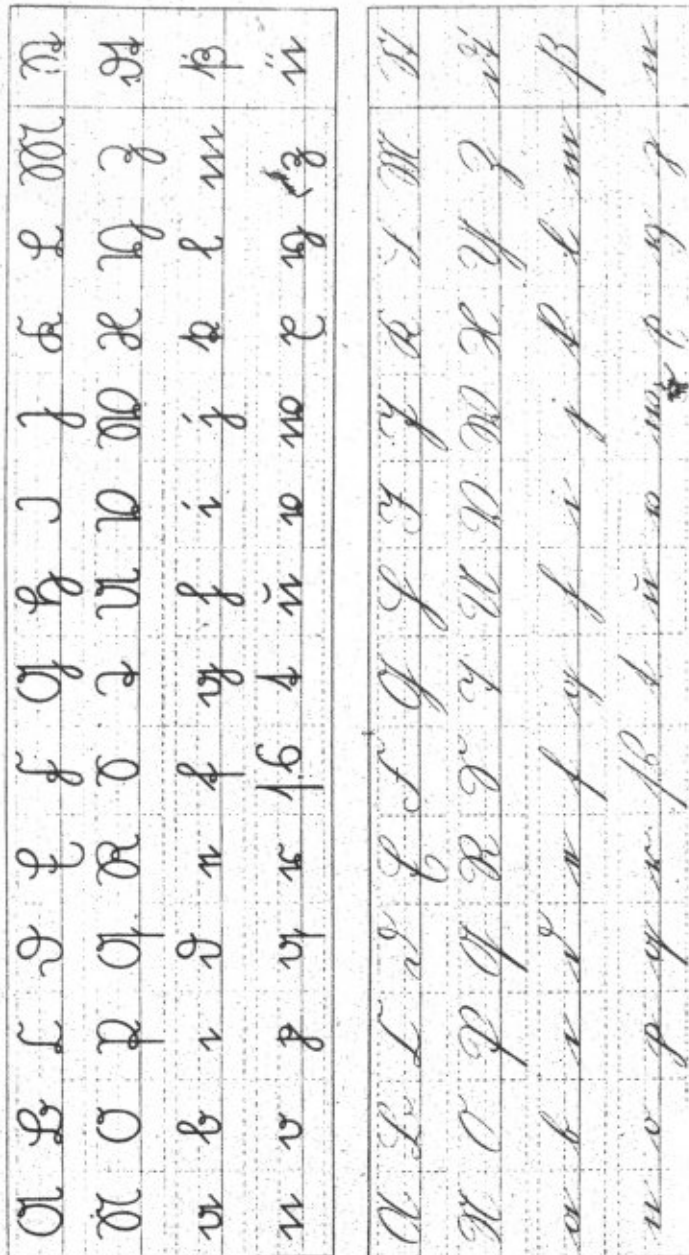 A B C D E F G H I J K L M
N O P Q R S T U V W X Y Z
a b c d e f g h i j k l m ß
n o p q r ſs t u v w x y z ü
A B C D E F G H I J K L M
N O P Q R S T U V W X Y Z
a b c d e f g h i j k l m ß
n o p q r ſs t u v w x y z